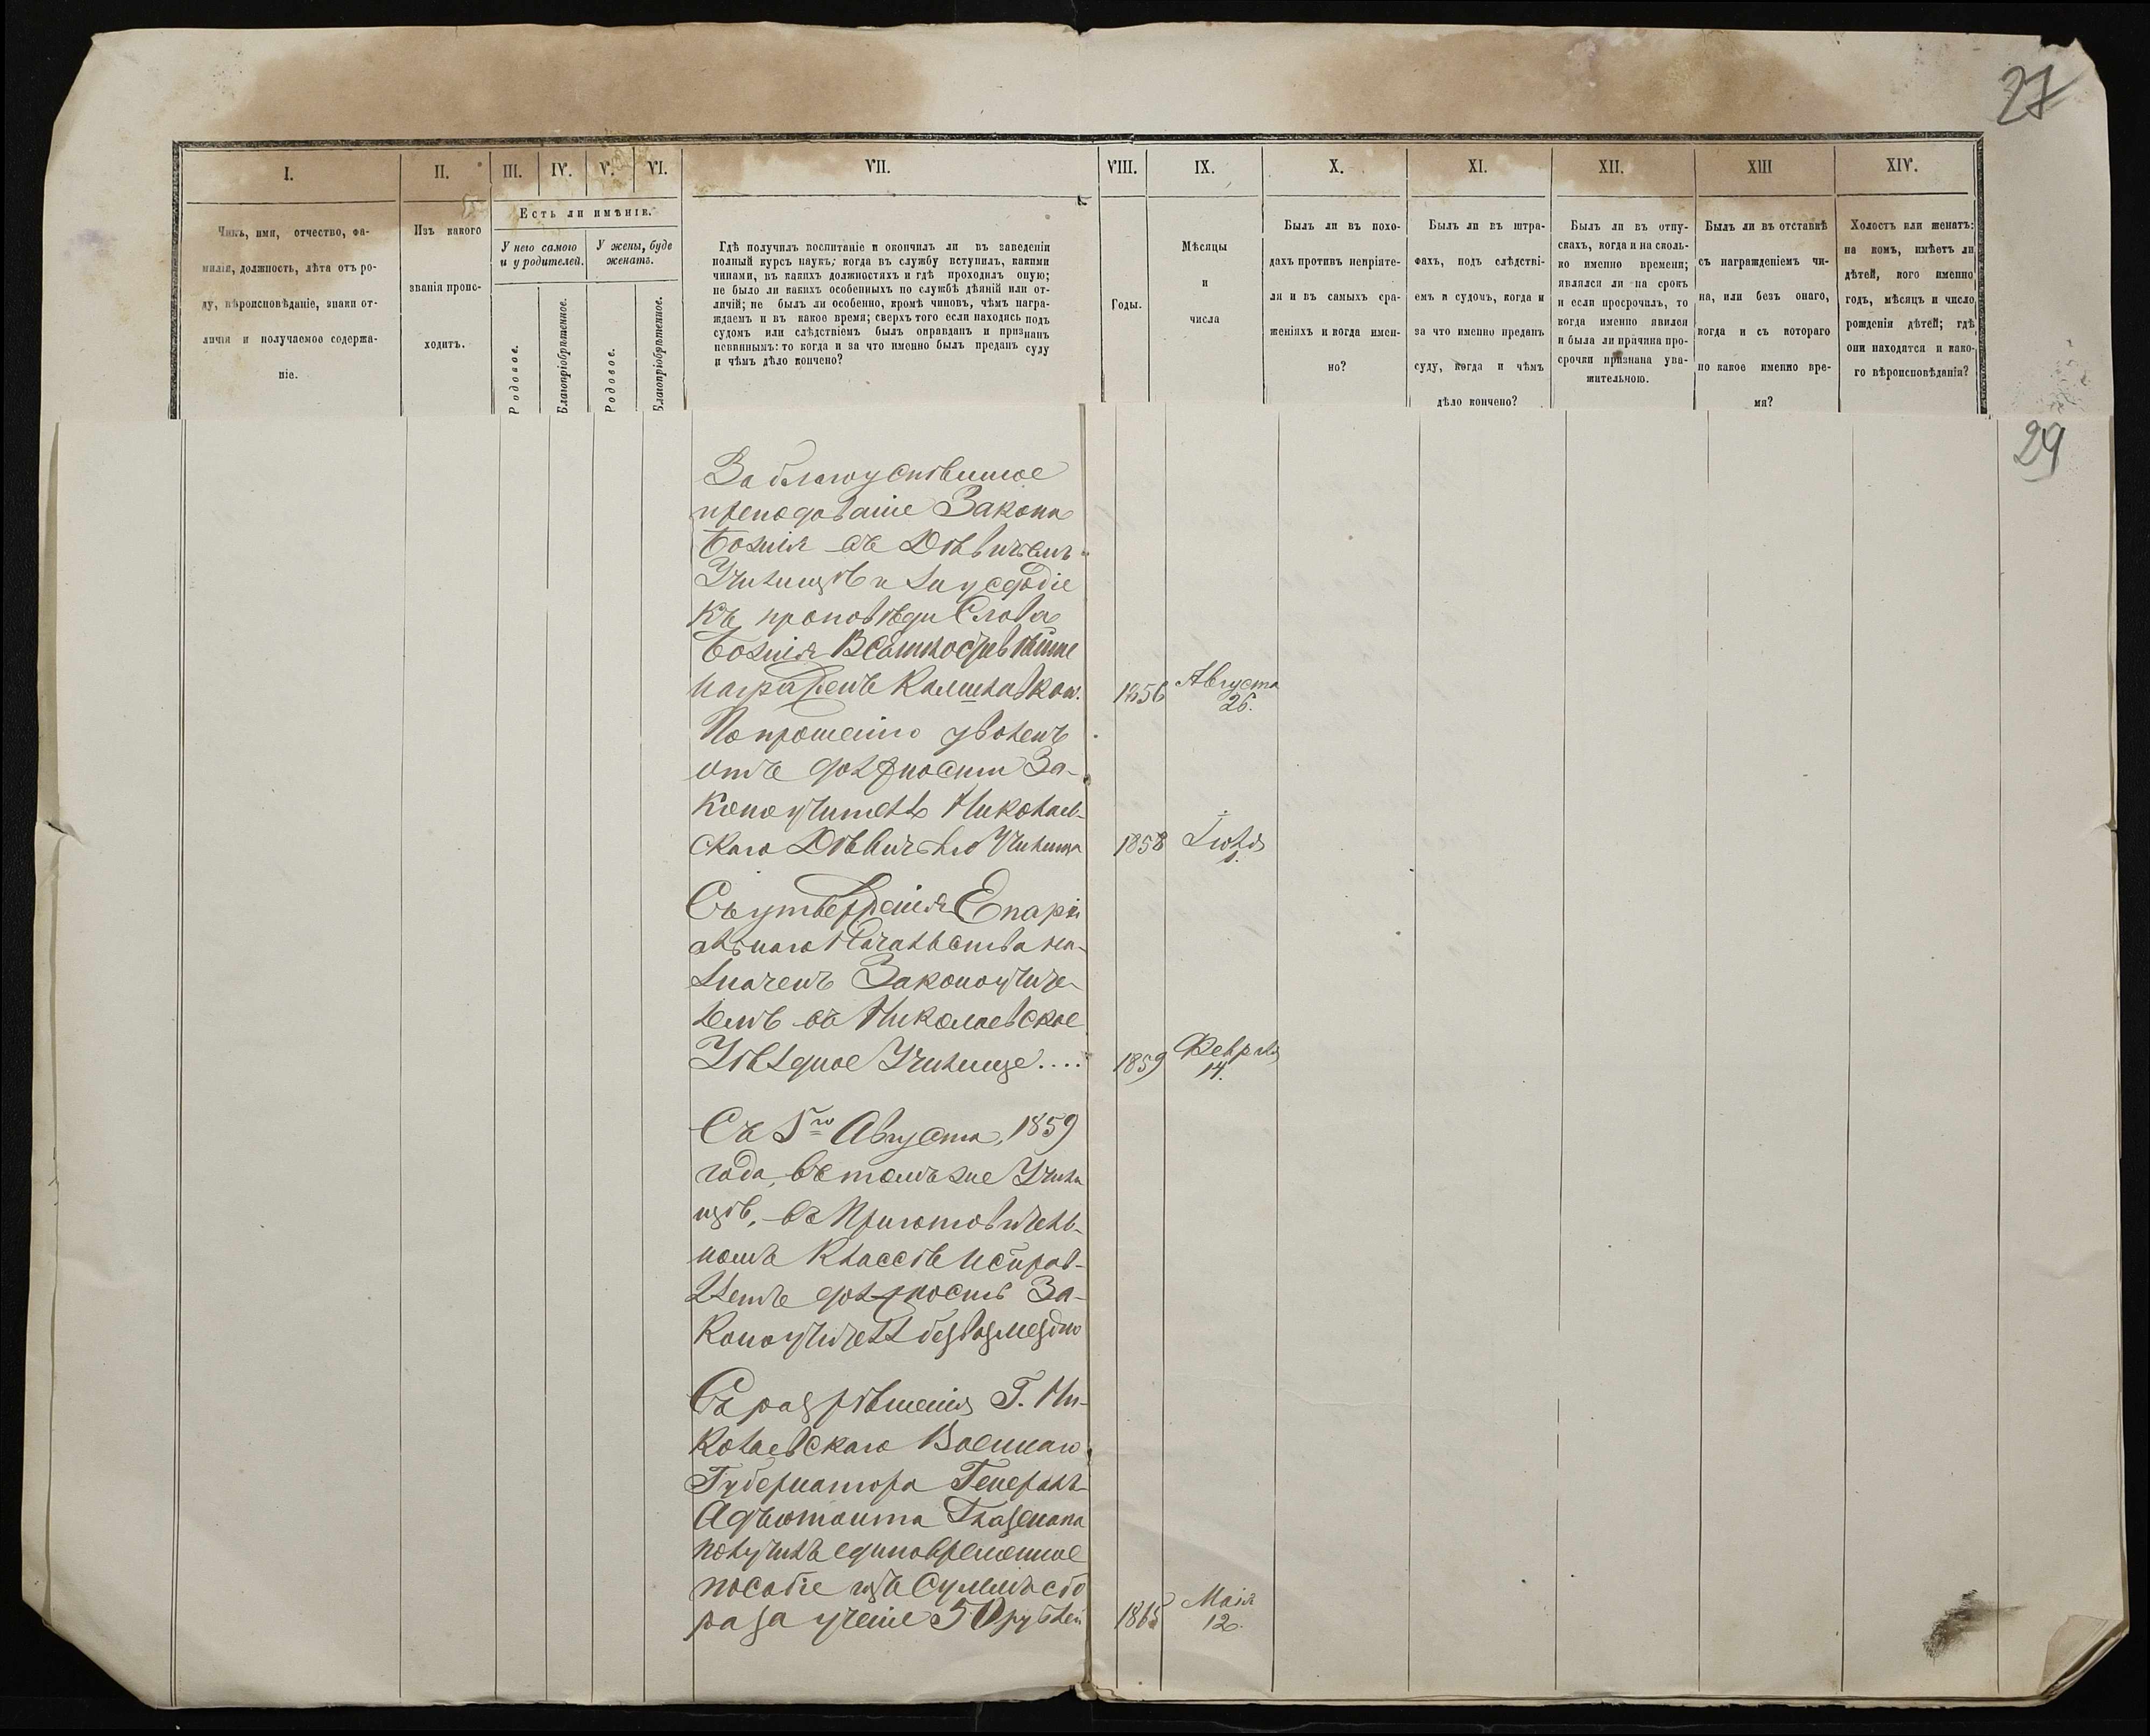 27
I.
II.
III.
IV.
V.
VI.
VII.
VIII.
IX.
X.
XI.
XII.
XIII
XIV.
Чинъ, имя, отчество, фа-
милія, должность, лѣта отъ ро-
ду, вѣроисповѣданіе, знаки от-
личія и получаемое содержа-
ніе.
Изъ какого
званія проис-
ходитъ.
Есть ли имѣніе.
У него самого
и у родителей.
У жены, буде
женатъ.
Родовое.
Благопріобрѣтенное.
Родовое.
Благопріобрѣтенное.
Гдѣ получилъ воспитаніе и окончилъ ли въ заведеніи
полный курсъ наукъ; когда въ службу вступилъ, какими
чинами, въ какихъ должностяхъ и гдѣ проходилъ оную;
не было ли какихъ особенныхъ по службѣ дѣяній или от-
личій; не былъ ли особенно, кромѣ чиновъ, чѣмъ награ-
ждаемъ и въ какое время; сверхъ того если находясь подъ
судомъ или слѣдствіемъ былъ оправданъ и признанъ
невиннымъ: то когда и за что именно былъ преданъ суду
и чѣмъ дѣло кончено?
Годы.
Мѣсяцы
и
числа
Былъ ли въ похо-
дахъ противъ непріяте-
ля и въ самыхъ сра-
женіяхъ и когда имен-
но?
Былъ ли въ штра-
фахъ, подъ слѣдстві-
емъ и судомъ, когда и
за что именно преданъ
суду, когда и чѣмъ
дѣло кончено?
Былъ ли въ отпу-
скахъ, когда и на сколь-
ко именно времени;
являлся ли на срокъ
и если просрочилъ, то
когда именно явился
и была ли причина про-
срочки признана ува-
жительною.
Былъ ли въ отставкѣ
съ награжденіемъ чи-
на, или безъ онаго,
когда и съ котораго
по какое именно вре-
мя?
Холостъ или женатъ:
на комъ, имѣетъ ли
дѣтей, кого именно
годъ, мѣсяцъ и число
рожденія дѣтей; гдѣ
они находятся и како-
го вѣроисповѣданія?
29
За благоуспѣшное
преподованіе Закона
Божія въ Дѣвичьемъ
Училищѣ и за усердіе
къ проповѣди Слова
Божія Всемилостивѣйше
награжденъ камилавкою.
1856 Августа
26.
По прошенію уволенъ
отъ должности За-
коноучителя Николаев-
скаго Дѣвичьяго Училища
1858 Іюля
1.
Съ утвержденія Епархі
альнаго Начальства на-
значенъ Законоучите-
лемъ въ Николаевское
Уѣздное Училище....
1859 Февраля
14.
Съ 1го Августа, 1859
года, въ томъ же Учили
щѣ, въ Приготовитель-
номъ Классѣ исправ-
ляетъ должность За-
коноучителя безвозмездно
Съ разрѣшенія Г. Ни-
колаевскаго Военнаго
Губернатора Генералъ-
Адъютанта Глазенапа
получилъ единовременное
пособіе изъ суммъ сбо
ра за ученіе 50 рублей
1865 Маія
12.